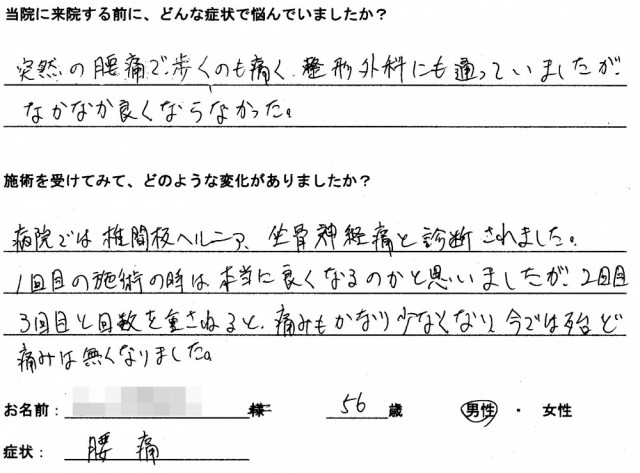 当院に来院する前に、どんな症状で悩んでいましたか？
突然の腰痛で歩くのも痛く、整形外科にも通っていましたが
なかなか良くならなかった。
施術を受けてみて、どのような変化がありましたか？
病院では椎間板ヘルニア、坐骨神経痛と診断されました。
1回目の施術の時は本当に良くなるのかと思いましたが、2回目
3回目と回数を重さねると、痛みもかなり少なくなり、今では殆ど
痛みは無くなりました。
お名前： 様 56 歳 男性 ・ 女性
症状： 腰痛